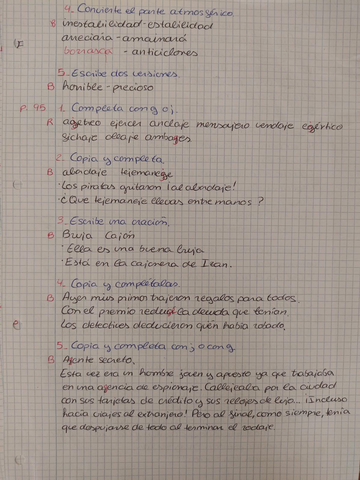 4. Convierte el parte atmosférico
B inestabilidad-estabilidad
arreciará - amainará
borrasca - anticiclones
5. Escribe dos versiones.
B horrible - precioso
P. 95 1. Completa con g o j.
R agético ejercer anclaje mensajero vendaje egéntico
sichaje oleaje ambages.
2. Copia y completa.
B abordaje tejemaneje
· Los piratas gritaron ¡al abordaje!
· ¿Que tejemaneje llevas entre manos?
3. Escribe una oración.
B Bruja Cajón
· Ella es una buena bruja
· Está en la cajonera de
4. Copia y complétalas
B Ayer mis primo trajeron regalos para todos.
Con el premio redujo la deuda que tenían
Los detectives dedujeron quén había robado.
5. Copia y completa con j o g.
B Ajente secreto.
Esta vez era un hombre joven y apuesto ya que trabajaba
en una agencia de espionaje. Callejeaba por la ciudad
con sus tarjetas de crédito y sus relojes de lujo... ¡Incluso
hacía viajes al extranjero! Pero al final, como siempre, tenía
que despojarse de todo al terminar el rodaje.